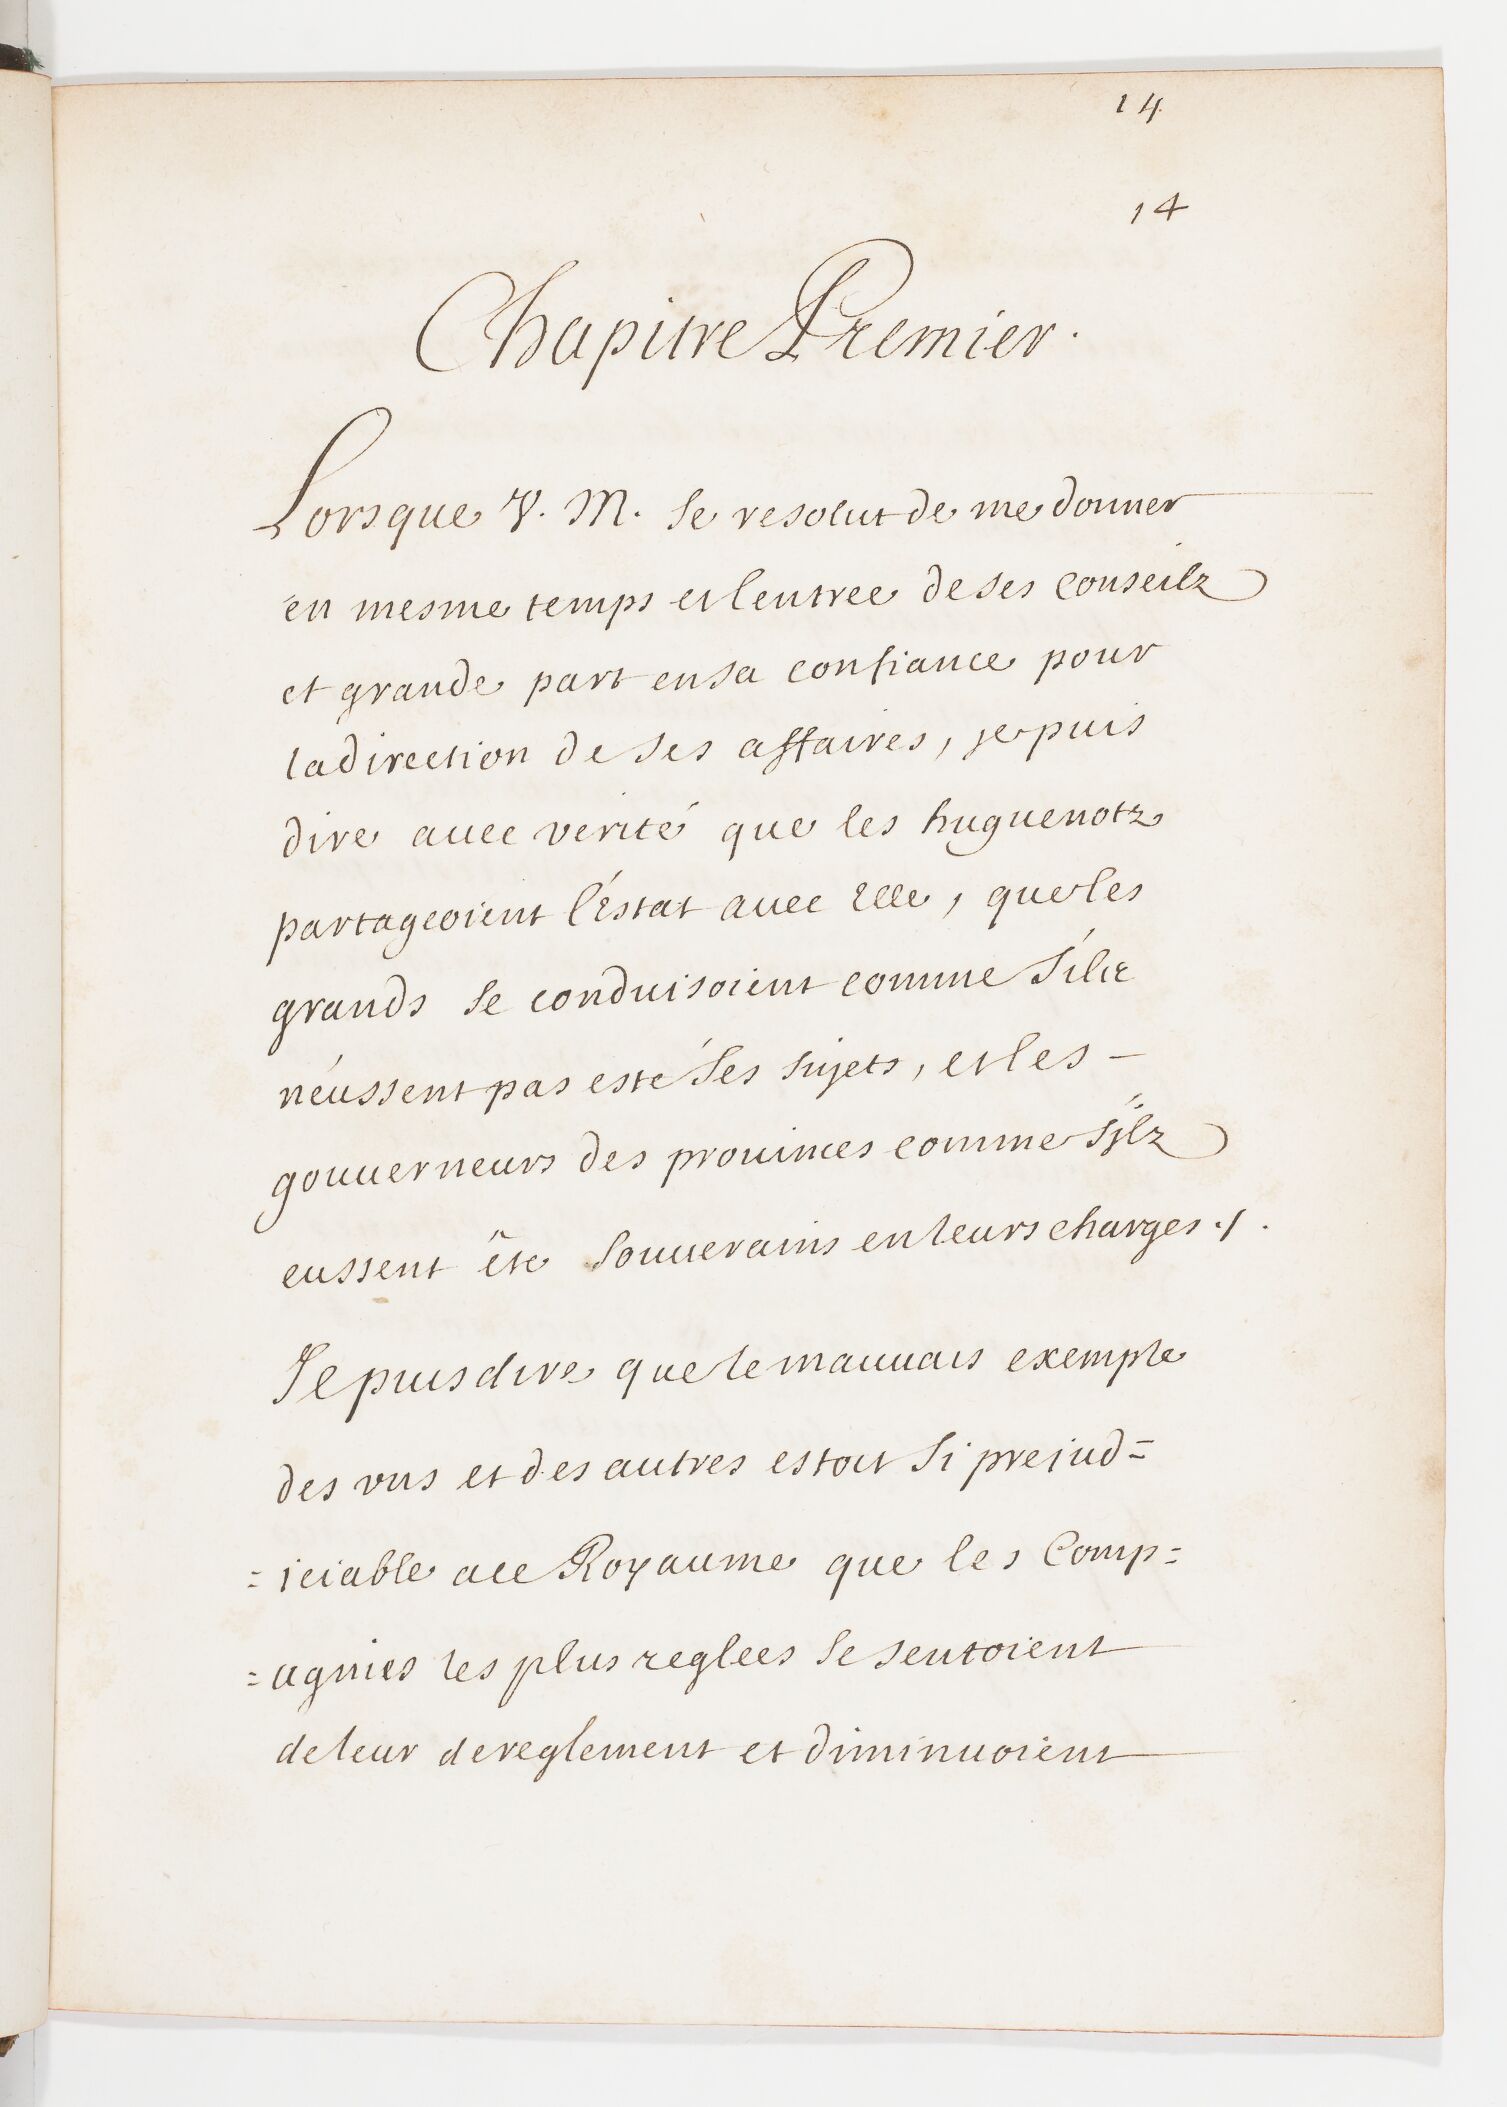 14
14
Chapitre Premier.
Lorsque V. M. se resolut de me donner
en mesme temps et lentree de ses conseilz
et grande part en sa confiance pour
la direction de ses affaires, je puis
dire avec verité que les huguenotz
partageoient l'Estat avec Elle, que les
grands se conduisoient comme s'ilz
n'eussent pas esté ses sujets, et les -
gouverneurs des provinces comme s'ÿlz
eussent été souverains en leurs charges ./.
Je puis dire que le mauvais exemple
des uns et des autres estoit si prejud=
=iciable a ce Royaume que les Comp=
=agnies les plus reglees se sentoient
de leur dereglement et diminuoient